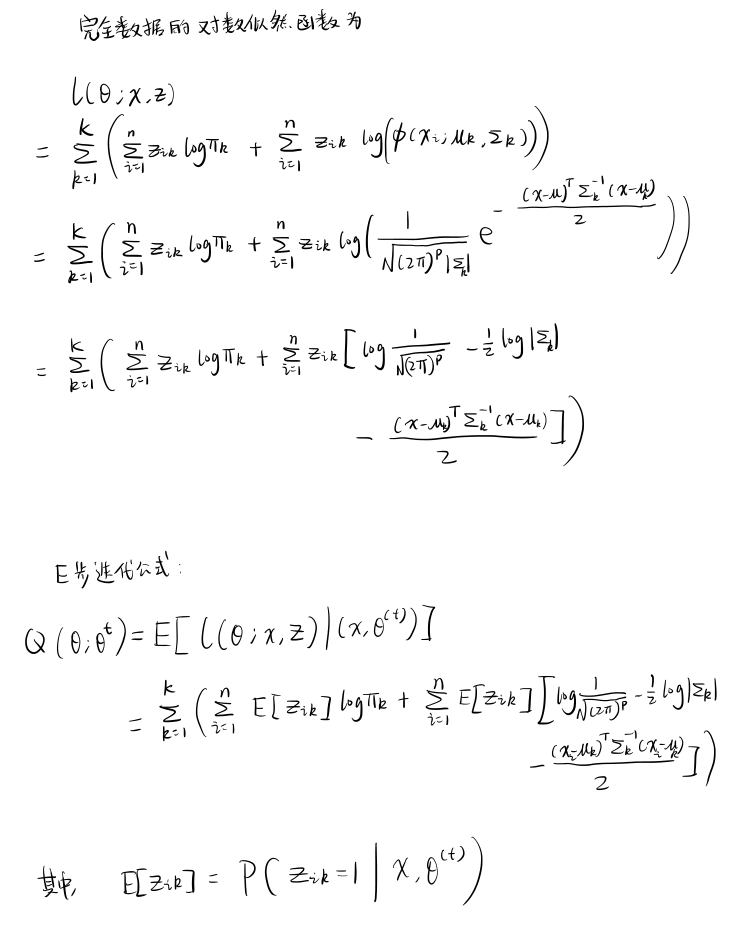 完全数据的对数似然函数为
l(θ;x,z)
= ∑_{k=1}^{K} ( ∑_{i=1}^{n} z_{ik} log π_k + ∑_{i=1}^{n} z_{ik} log(ϕ(x_i; μ_k, Σ_k)) )
= ∑_{k=1}^{K} ( ∑_{i=1}^{n} z_{ik} log π_k + ∑_{i=1}^{n} z_{ik} log( \frac{1}{\sqrt{(2π)^p |Σ_k|}} e^{- \frac{(x-μ)^T Σ_k^{-1} (x-μ_k)}{2}} ) )
= ∑_{k=1}^{K} ( ∑_{i=1}^{n} z_{ik} log π_k + ∑_{i=1}^{n} z_{ik} [ log \frac{1}{\sqrt{(2π)^p}} - \frac{1}{2} log |Σ_k|
- \frac{(x-μ_k)^T Σ_k^{-1} (x-μ_k)}{2} ] )
E步迭代公式:
Q(θ;θ^t) = E[ l(θ;x,z) | (x,θ^{(t)}) ]
= ∑_{k=1}^{K} ( ∑_{i=1}^{n} E[z_{ik}] log π_k + ∑_{i=1}^{n} E[z_{ik}] [ log \frac{1}{\sqrt{(2π)^p}} - \frac{1}{2} log |Σ_k|
- \frac{(x_i-μ_k)^T Σ_k^{-1} (x_i-μ_k)}{2} ] )
其中, E[z_{ik}] = P( z_{ik}=1 | x, θ^{(t)} )